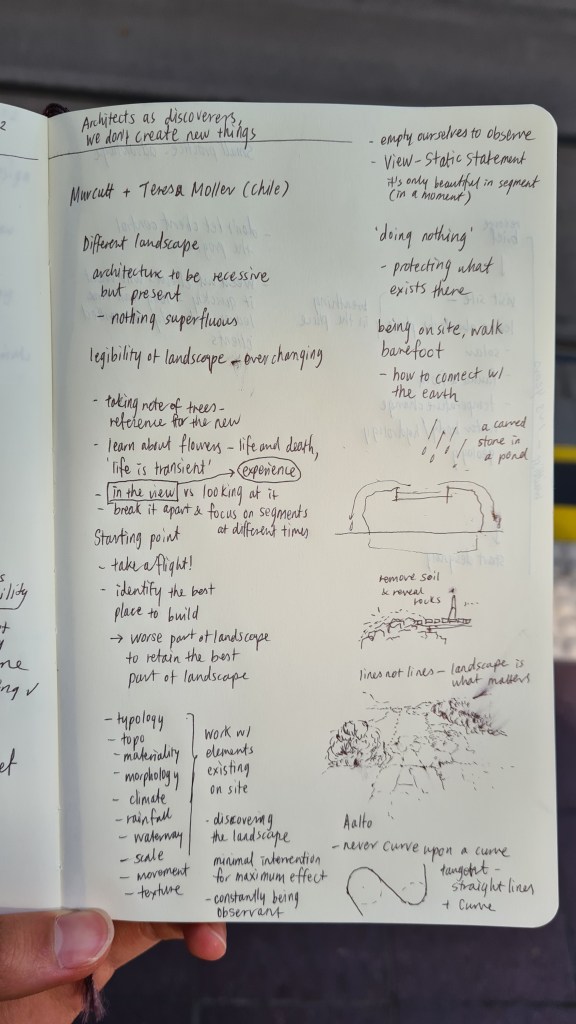 Architects as discoverers,
we don't create new things
Murcutt + Teresa Moller (Chile)
Different landscape
architecture to be recessive
but present
- nothing superfluous
legibility of landscape - ever changing
- taking note of trees -
reference for the new
- learn about flowers - life and death,
'life is transient' → experience
- in the view vs looking at it
- break it apart & focus on segments
at different times
Starting point
- take a flight!
- identify the best
place to build
→ worse part of landscape
to retain the best
part of landscape
- typology
- topo
- materiality
- morphology
- climate
- rainfall
- waterway
- scale
- movement
- texture
work w/
elements
existing
on site
- discovering
the landscape
minimal intervention
for maximum effect
- constantly being
observant
- empty ourselves to observe
- View - static statement
it's only beautiful in segment
(in a moment)
'doing nothing'
- protecting what
exists there
being on site, walk
barefoot
- how to connect w/
the earth
a carved
stone in
a pond
remove soil
& reveal
rocks
lines not lines - landscape is
what matters
Aalto
- never curve upon a curve
tangent -
straight lines
+ curve
2